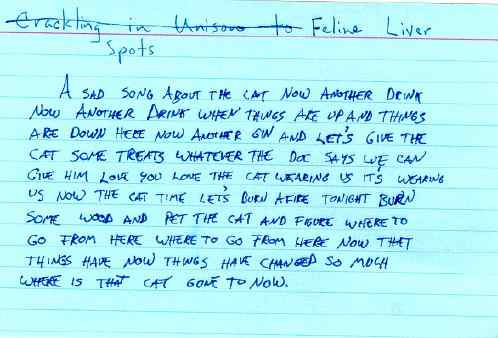 Crackling in Unison to Feline Liver
Spots
A SAD SONG ABOUT THE CAT NOW ANOTHER DRINK
NOW ANOTHER DRINK WHEN THINGS ARE UP AND THINGS
ARE DOWN HERE NOW ANOTHER GIN AND LET'S GIVE THE
CAT SOME TREATS WHATEVER THE DOC SAYS WE CAN
GIVE HIM LOVE YOU LOVE THE CAT WEARING US IT'S WEARING
US NOW THE CAT TIME LET'S BURN A FIRE TONIGHT BURN
SOME WOOD AND PET THE CAT AND FIGURE WHERE TO
GO FROM HERE WHERE TO GO FROM HERE NOW THAT
THINGS HAVE NOW THINGS HAVE CHANGED SO MUCH
WHERE IS THAT CAT GONE TO NOW.